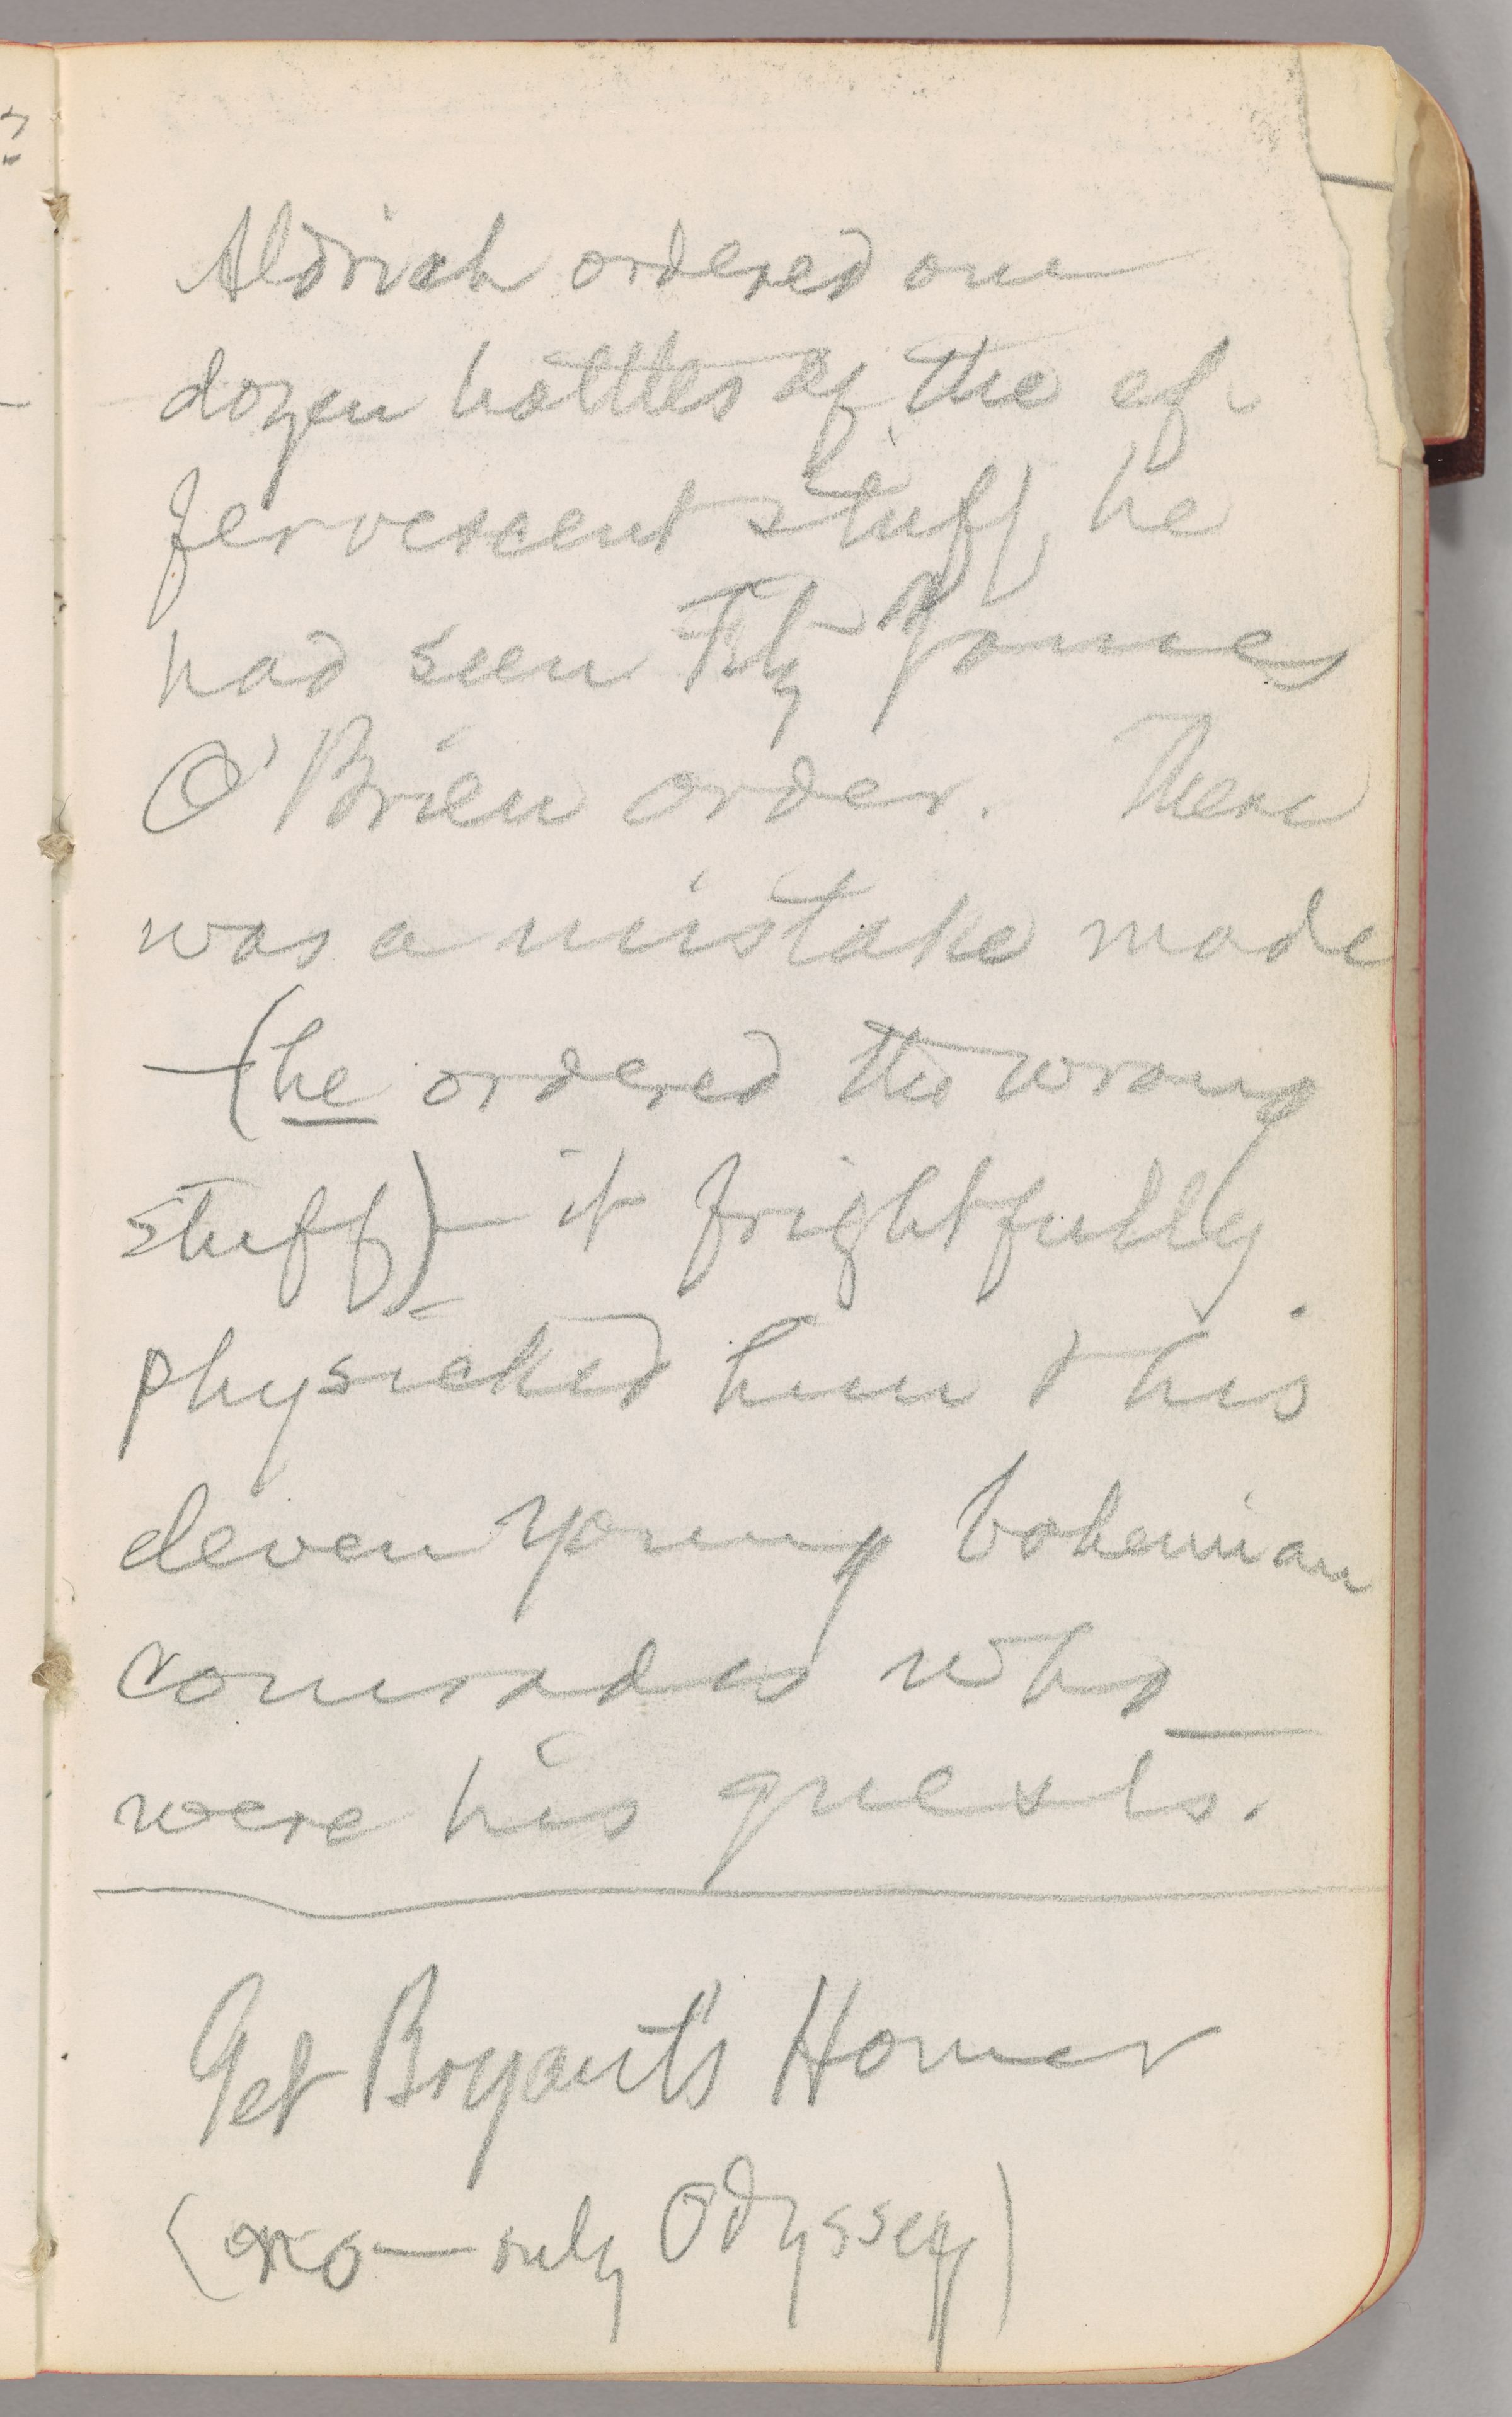 Aldrich ordered one
dozen bottles of the ef-
fervescent stuff he
had seen Fitz James
O'Brien order. There
was a mistake made
—(he ordered the wrong
stuff)— it frightfully
physicked him & his
eleven young bohemian
comrades who
were his guests.
Get Bryant's Homer
(no—only Odyssey)